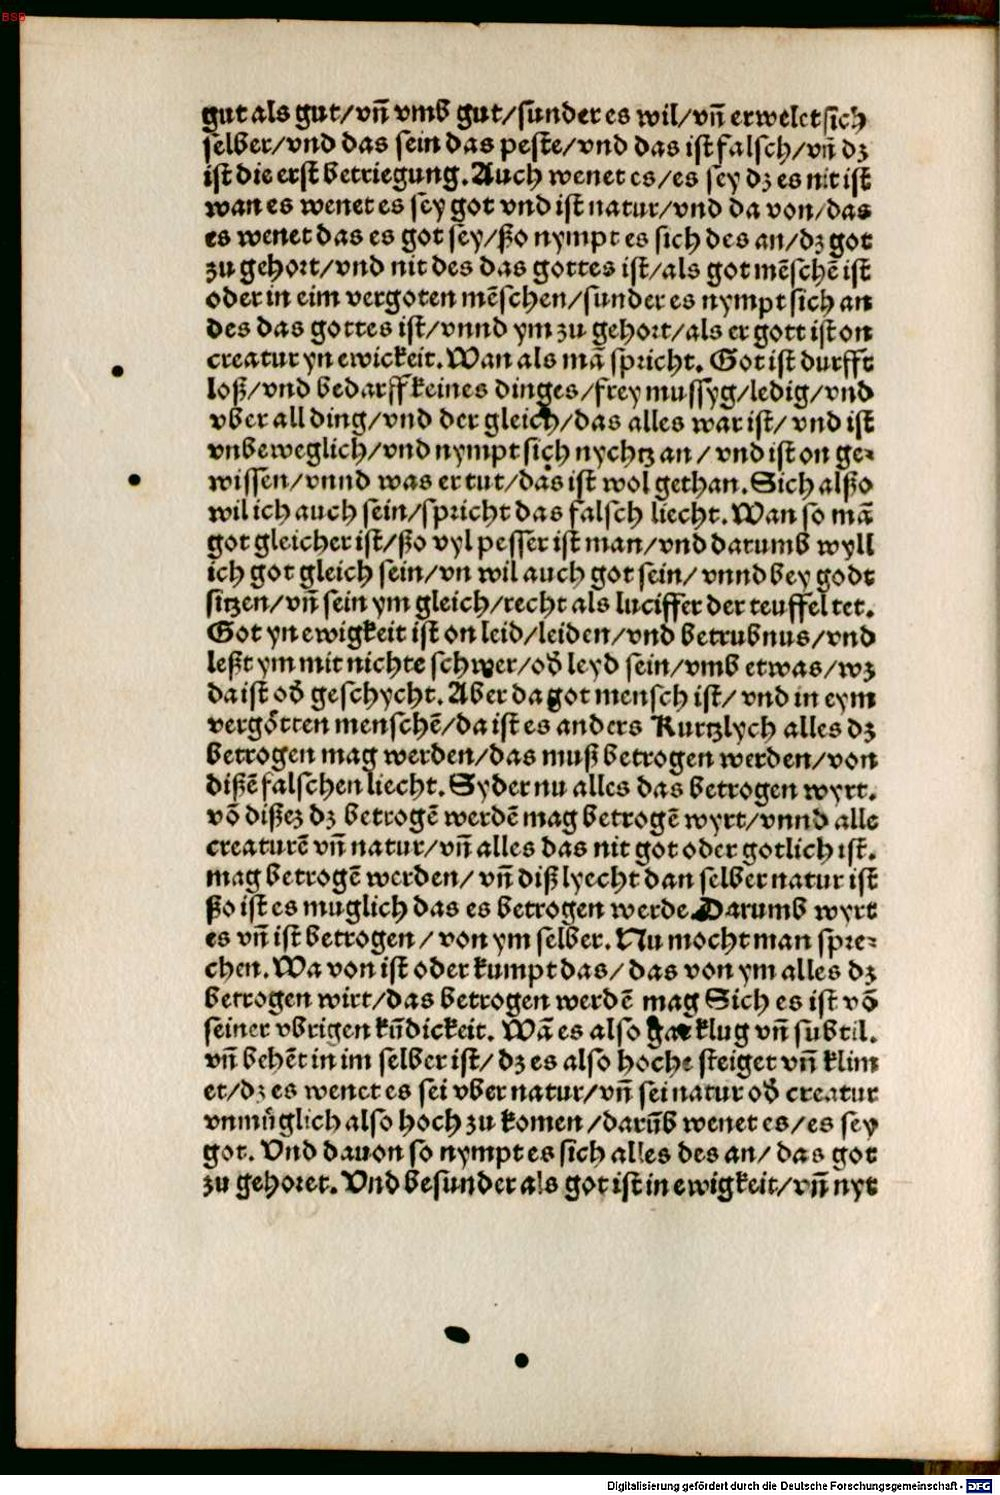 BSB
gut als gut/vñ vmb gut/sunder es wil/vñ erwelet sich
selber/vnd das sein das peste/vnd das ist falsch/vñ dz
ist die erst betriegung. Auch wenet es/es sey dz es nit ist
wan es wenet es sey got vnd ist natur/vnd da von/das
es wenet das es got sey/ßo nympt es sich des an/dz got
zu gehort/vnd nit des das gottes ist/als got mēschē ist
oder in eim vergoten mēschen/sunder es nympt sich an
des das gottes ist/vnnd ym zu gehort/als er gott ist on
creatur yn ewickeit. Wan als mā spricht. Got ist durfft
loß/vnd bedarff keines dinges/frey mussyg/ledig/vnd
vber all ding/vnd der gleich/das alles war ist/ vnd ist
vnbeweglich/vnd nympt sich nychtz an / vnd ist on ge-
wissen/vnnd was er tut/das ist wol gethan. Sich alßo
wil ich auch sein/spricht das falsch liecht. Wan so mā
got gleicher ist/ßo vyl pesser ist man/vnd darumb wyll
ich got gleich sein/vn wil auch got sein/ vnnd bey godt
sitzen/vñ sein ym gleich/recht als luciffer der teuffel tet.
Got yn ewigkeit ist on leid/leiden/vnd betrubnus/vnd
leßt ym mit nichte schwer/od̄ leyd sein/vmb etwas/wz
da ist od̄ geschycht. Aber da got mensch ist/ vnd in eym
vergötten menschē/da ist es anders Kurtzlych alles dz
betrogen mag werden/das muß betrogen werden/von
dißē falschen liecht. Syder nu alles das betrogen wyrt.
vō dißez dz betrogē werdē mag betrogē wyrt/vnnd alle
creaturē vñ natur/vñ alles das nit got oder gotlich ist.
mag betrogē werden/ vñ diß lyecht dan selber natur ist
ßo ist es muglich das es betrogen werde Darumb wyrt
es vñ ist betrogen / von ym selber. Nu mocht man spre-
chen. Wa von ist oder kumpt das/ das von ym alles dz
betrogen wirt/das betrogen werdē mag Sich es ist vō
seiner vbrigen kūdickeit. Wā es also gar klug vñ subtil.
vñ behēt in im selber ist/ dz es also hoche steiget vñ klim
et/dz es wenet es sei vber natur/vñ sei natur od̄ creatur
vnmüglich also hoch zu komen /darūb wenet es/es sey
got. Vnd dauon so nympt es sich alles des an/ das got
zu gehoret. Vnd besunder als got ist in ewigkeit/vñ nyt
Digitalisierung gefördert durch die Deutsche Forschungsgemeinschaft - DFG